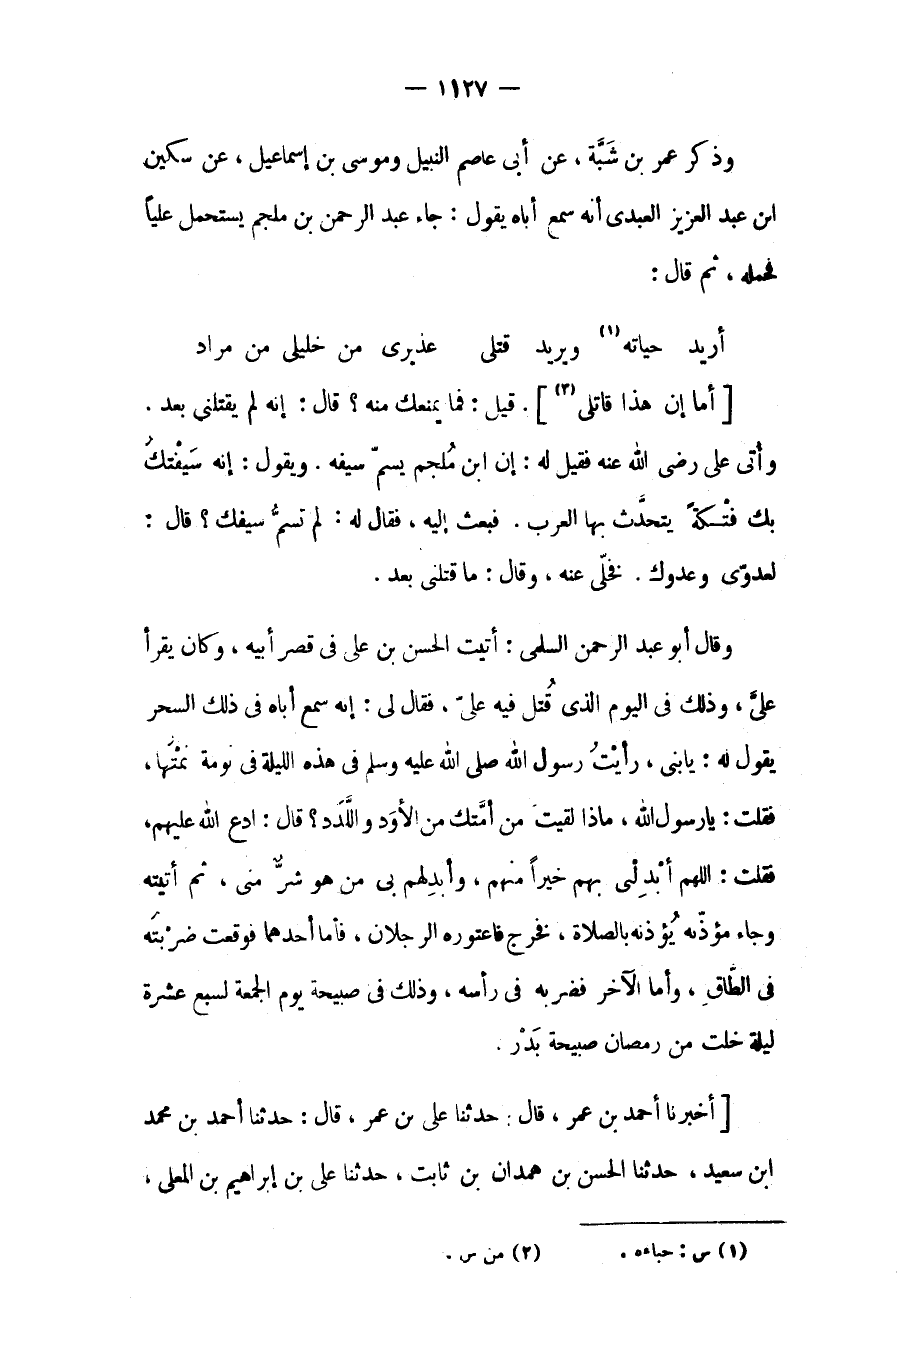 — ١١٢٧ —
وذكر عمر بن شَبَّة ، عن أبى عاصم النبيل وموسى بن إسماعيل ، عن سكين
ابن عبد العزيز العبدى أنه سمع أباه يقول : جاء عبد الرحمن بن ملجم يستحمل علياً
فحمله ، ثم قال :
أريد حياته(١) ويريد قتلى عذيرى من خليلى من مراد
[ أما إن هذا قاتلى(٢) ] . قيل : فما يمنعك منه ؟ قال : إنه لم يقتلني بعد .
وأتى على رضى الله عنه فقيل له : إن ابن مُلجم يسمّ سيفه . ويقول : إنه سَيفْتكُ
بك فتْكةً يتحدَّث بها العرب . فبعث إليه ، فقال له : لم تسمُّ سيفك ؟ قال :
لعدوّى وعدوك . فخلّى عنه ، وقال : ما قتلنى بعد .
وقال أبو عبد الرحمن السلمى : أتيت الحسن بن على فى قصر أبيه ، وكان يقرأ
علىَّ ، وذلك فى اليوم الذى قُتل فيه علىّ ، فقال لى : إنه سمع أباه فى ذلك السحر
يقول له : يابنى ، رأيْتُ رسول الله صلى الله عليه وسلم فى هذه الليلة فى نومة نمْتُها ،
فقلت : يارسول الله ، ماذا لقيت من أمَّتك من الأوَد واللَّدَد ؟ قال : ادع الله عليهم ،
فقلت : اللهم أبْدِلْنى بهم خيراً منهم ، وأبدِلهم بى من هو شرٌّ منى ، ثم أتيته
وجاء مؤذّنه يُؤذنه بالصلاة ، فخرج فاعتوره الرجلان ، فأما أحدهما فوقعت ضرْبتَه
فى الطَّاقِ ، وأما الآخر فضربه فى رأسه ، وذلك فى صبيحة يوم الجمعة لسبع عشرة
ليلة خلت من رمضان صبيحة بَدْر .
[ أخبرنا أحمد بن عمر ، قال : حدثنا على بن عمر ، قال : حدثنا أحمد بن محمد
ابن سعيد ، حدثنا الحسن بن همدان بن ثابت ، حدثنا على بن إبراهيم بن المعلى ،
(١) س : حباءه . (٢) من س .